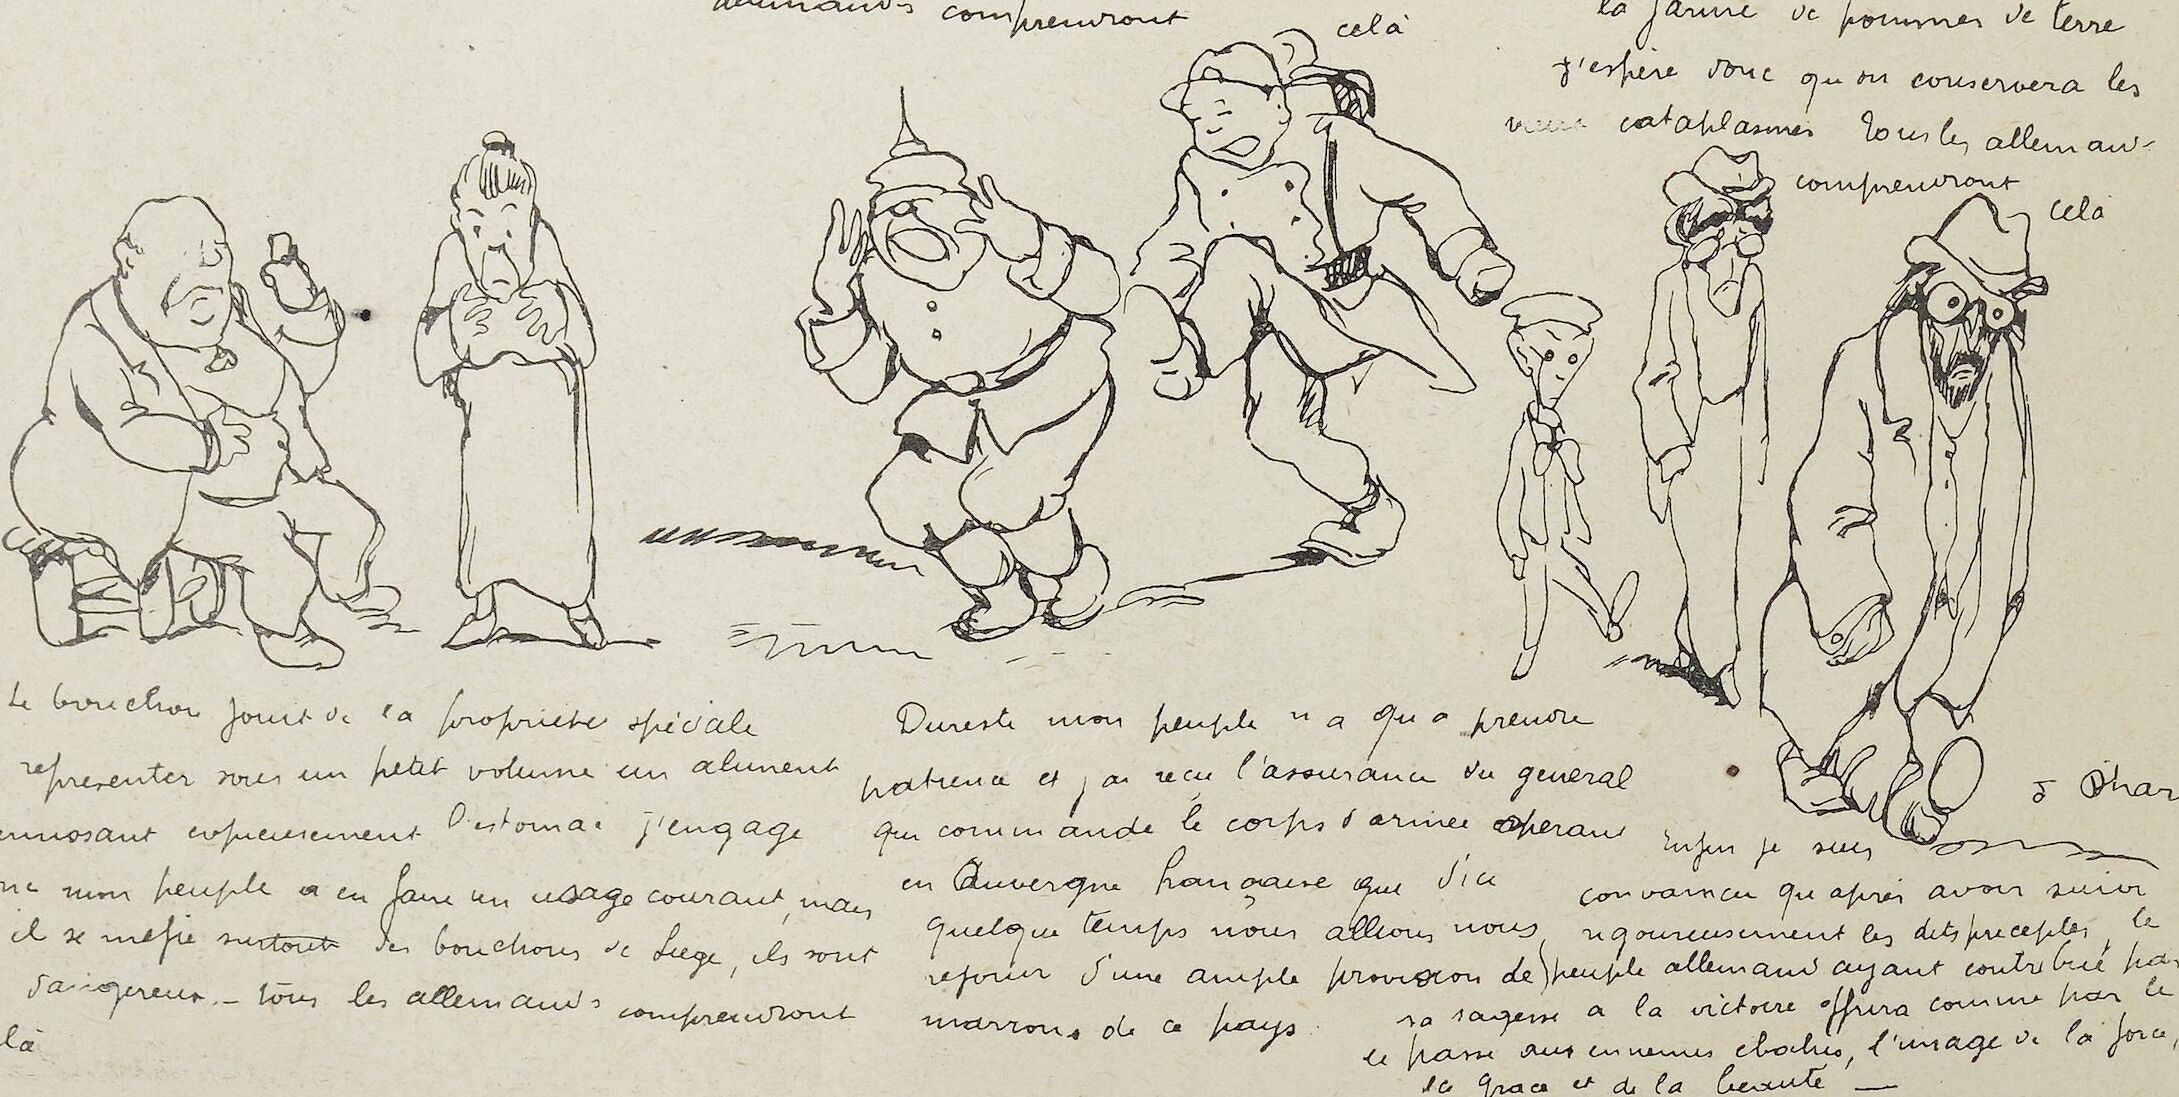 allemands comprendront
celà
la farine de pommes de terre
j'espère donc qu'on conservera les
vieux cataplasmes Tous les allemands
comprendront
celà
Le bouchon jouit de la propriété spéciale
représenter sous un petit volume un aliment
l'estomac j'engage
mon peuple a en faire un usage courant, mais
il se mefie surtout des bouchons de Liège, ils sont
dangereux - tous les allemands comprendront
là
Dureste mon peuple n'a qu'a prendre
patience et j'ai reçu l'assurance du general
qui commande le corps d'armée operant
en Auvergne française que d'ici
quelque temps nous allions nous
rejouir d'une ample provision de
marrons de ce pays.
Enfin je suis
convaincu qu'après avoir suivi
rigoureusement les dits preceptes, le
peuple allemand ayant contribué par
sa sagesse a la victoire offrira comme par le
passé aux ennemis ebahis, l'image de la force,
la grace et de la beauté —